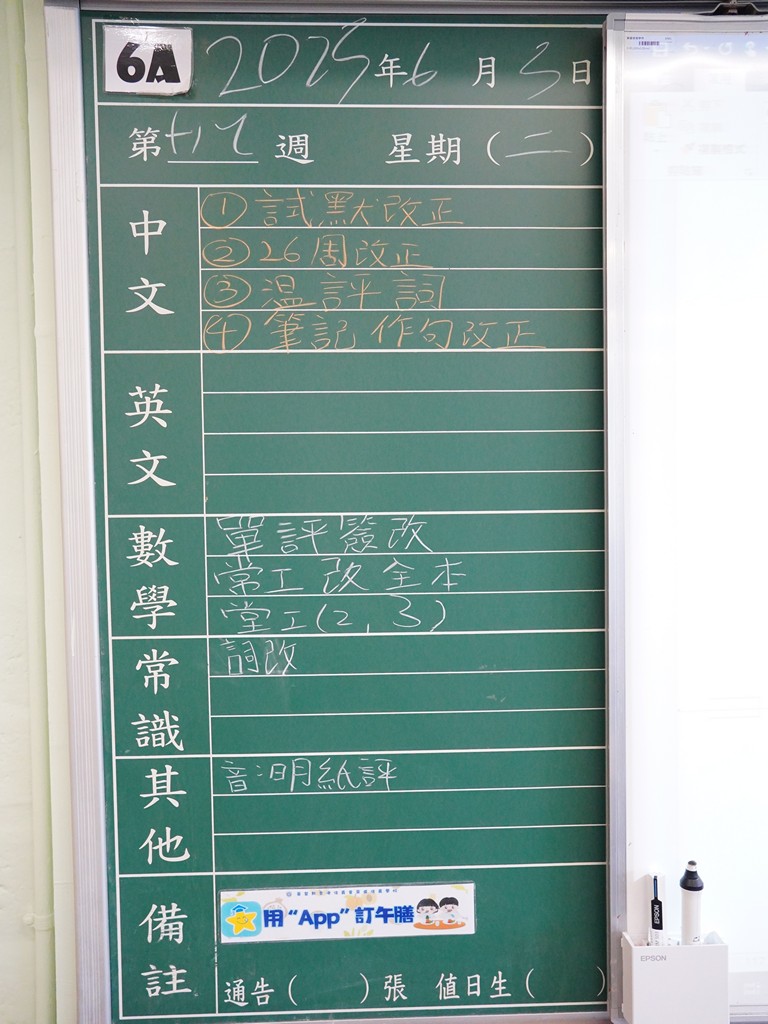 6A 2025年6月3日
第 週 星期（二）
中文
①試默改正
②26周改正
③溫評詞
④筆記作句改正
英文
數學
單評簽改
常工改全本
堂工(2,3)
常識
詞改
其他
音:明紙評
備註
用“App”訂午膳
通告（ ）張 值日生（ ）
EPSON
EPSON